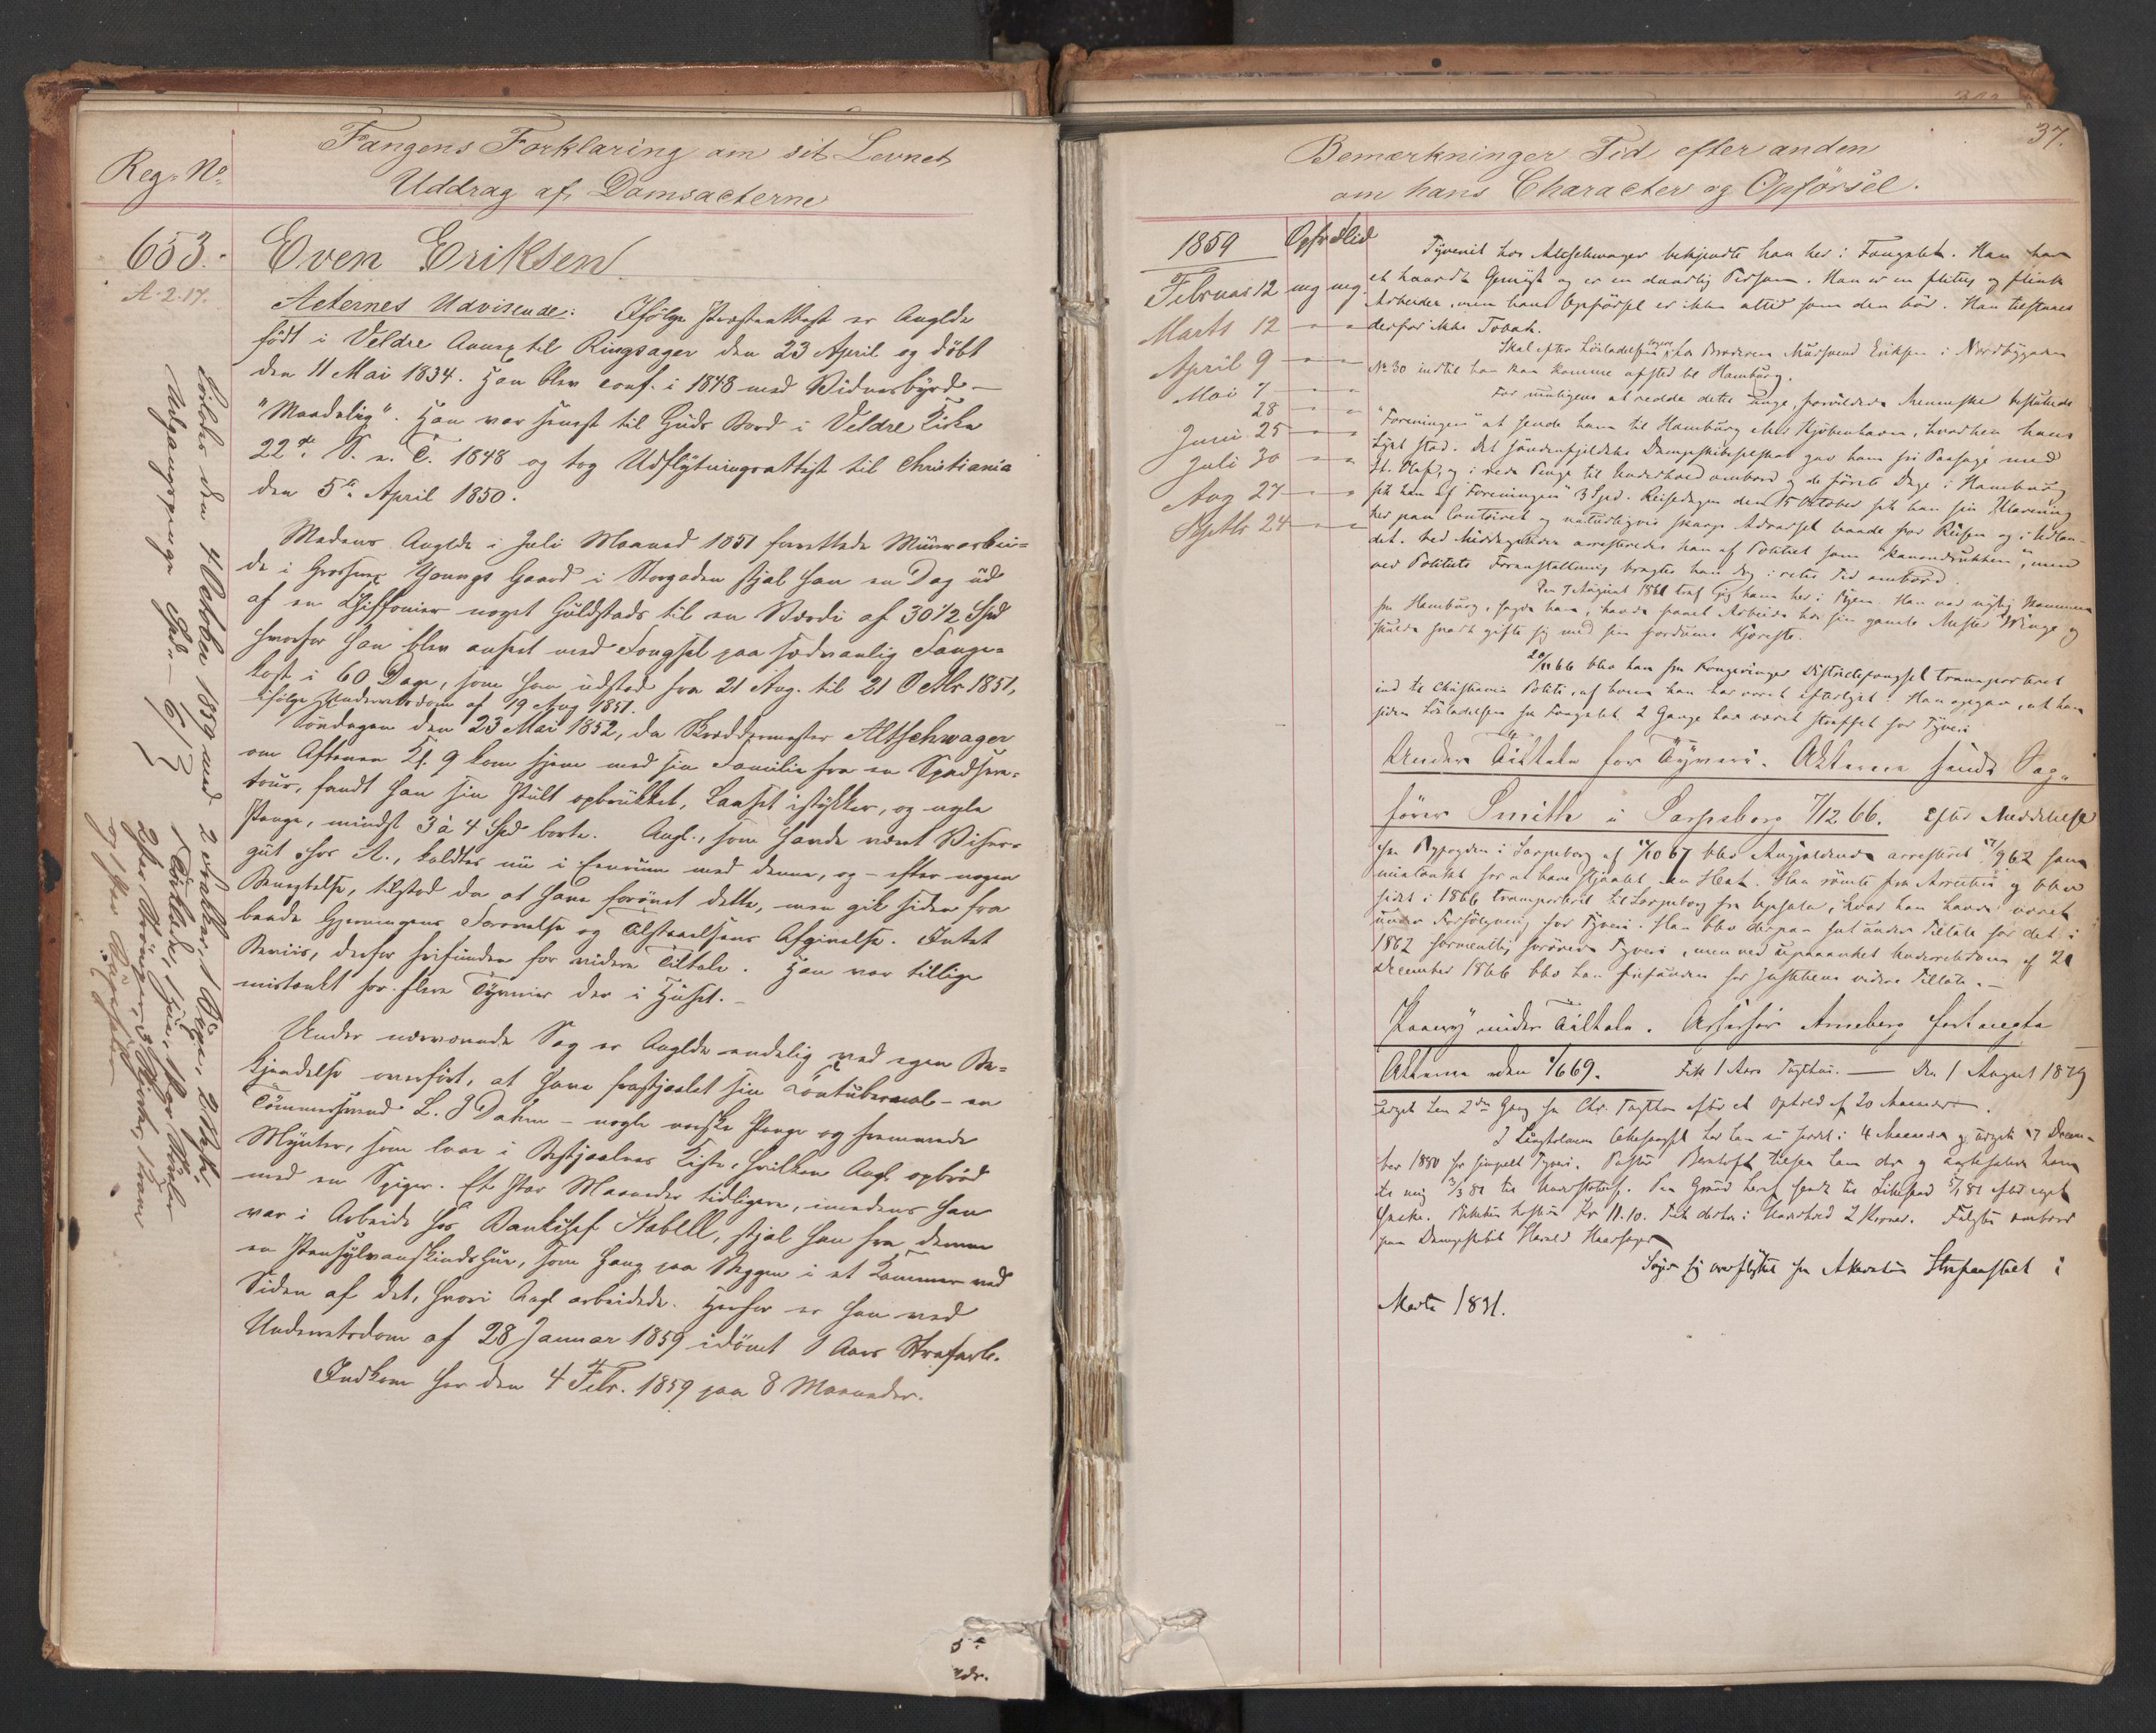 Reg. No
Fangens Forklaring om sit Levnet
Uddrag af Domsacterne
653.
A. 2. 17.
Even Eriksen
Acternes Udvisende: Ifølge Præsteattest er Anglde
født i Veldre Annex til Ringsager den 23 April og døbt
den 11 Mai 1834. Han blev conf. i 1848 med Vidnesbyrd –
"Maadelig". Han var senest til Guds Bord i Veldre Kirke
22de S. e. T. 1848 og tog Udflytningsattest til Christiania
den 5te April 1850.
Medens Anglde i Juli Maaned 1851 forrettede Muurarbei-
de i Grosserer Youngs Gaard i Storgaden stjal han en Dag ud
af en Chiffonier noget Guldstads til en Værdi af 30 1/2 Spd
hvorfor han blev anseet med Fængsel paa sædvanlig Fange-
kost i 60 Dage, som han udstod fra 21 Aug. til 21 Octbr 1851,
ifølge Underretsdom af 19 Aug 1851.
Søndagen den 23 Mai 1852, da Skræddermester Altschwager
om Aftenen Kl. 9 kom hjem med sin Familie fra en Spadsere-
tour, fandt han sin Pult opbrukket, Laaset istykker, og nogle
Penge, mindst 3 à 4 Spd borte. Angl., som havde været Viser-
gut hos A., kaldtes nu i Eenrum med denne, og – efter nogen
Benegtelse, tilstod da at have forøvet dette, men gik siden fra
baade Gjerningens Forøvelse og Tilstaaelsens Afgivelse. Intet
Beviis, derfor frifunden for videre Tiltale. Han var tillige
mistænkt for flere Tyverier der i Huset. –
Under nærværende Sag er Anglde endelig ved egen Be-
kjendelse overført, at have frastjaalet sin Contubernal – en
Tømmersvend L. J Dahm – nogle norske Penge og fremmede
Mynter, som laae i Bestjaalnes Kiste, hvilken Angl opbrød
med en Spiger. Et Par Maaneder tidligere, imedens han
var i Arbeide hos Bankchef Stabell, stjal han fra denne
en som hang paa Væggen i et Kammer ved
Siden af det, hvori Angl arbeidede. Herfor er han ved
Underretsdom af 28 Januar 1859 idømt 1 Aars Strafarb.
Indkom her den 4 Febr. 1859 paa 8 Maaneder.
Løslades den 4 October 1859 med 2 Frakker, 1 Buxe, 2 Veste,
1 Tørklæde, 1 Hue, 1 Par Støvler
Udgangspenge Spd – 6/3
Bemærkninger Tid efter anden
om hans Character og Opførsel.
37.
1859 Opfrs Flid
Februar 12 mg mg.
Marts 12 – –
April 9 – –
Mai 7 – –
28 – –
Juni 25 – –
Juli 30 – –
Aug 27 – –
Septbr 24 – –
Tyveriet hos Altschwager bekjendte han her i Fængslet. Han har
et haardt Gemyt og er en daarlig Person. Han er en flittig og flink
Arbeider, men hans Opførsel er ikke altid som den bør. Han tilstaaes
derfor ikke Tobak.
Skal efter Løsladelsen logere hos Broderen Muursvend Eriksen i Nordbygaden
No 30 indtil han kan komme afsted til Hamburg.
For muligens at redde dette unge, forvildede Menneske besluttede
"Foreningen" at sende ham til Hamburg eller Kjøbenhavn, hvorhen hans
Lyst stod. Det søndenfjeldske Dampskibsselskab gav ham fri Passage med
St. Olaf, og i rede Penge til Underhold ombord og de første Dage i Hamburg
fik han af "Foreningen" 3 Spd. Reisedagen den 15 October fik han sin Klarering
her paa Contoiret og naturligvis skarp Advarsel baade for Reisen og i Udlan-
det. Ved Middagstider arresteredes han af Politiet som "kanondrukken", men
ved Politiets Foranstaltning bragtes han dog i rette Tid ombord.
Den 7 August 1861 traf jeg ham her i Byen. Han var nylig kommen
fra Hamburg, sagde han, havde faaet Arbeide hos sin gamle Mester Winge og
skulde snart gifte sig med sin fordums Kjæreste.
20/11 66 blev han fra Kongsvinger Districtsfængsel transporteret
ind til Christiania Politi, af hvem han har været efterlyst. Han opgav, at han
siden Løsladelsen fra Fængslet 2 Gange har været straffet for Tyveri
Under Tiltale for Tyveri. Akterne sendt Sag-
fører Smith i Sarpsborg 7/12 66. Efter Meddelelse
fra Byfogden i Sarpsborg af 14/10 67 blev Angjældende arresteret 17/9 62 som
mistænkt for at have stjaalet en Hest. Han rømte fra Arresten og blev
sidst i 1866 transporteret til Sarpsborg fra Upsala, hvor han havde været
under Forfølgning for Tyveri. Han blev derpaa sat under Tiltale for det i
1862 formentlig forøvede Tyveri, men ved upaaanket Underretsdom af 21
December 1866 blev han frifunden for Justitiens videre Tiltale. –
Paany under Tiltale. Assessor Anneberg
Akterne den 1/6 69. Fik 1 Aars Tugthus. — Den 1 August 1879
udgik han 2den Gang fra Chr. Tugthus efter et Ophold af 20 Maaneder.
I har han nu siddet i 4 Maaneder og udgik 17 Decem-
ber 1880 for simpelt Tyveri. Pastor
til mig 3/3 81 til Understøttelse. sendt til 5/3 81 efter eget
Ønske. Billetten kostede Kr 11.10. Fik desuden i Underhold 2 Kroner. Fulgtes ombord
paa Dampskibet Harald Haarfager
Siges sig overflyttet fra Akershus Strafanstalt i
Marts 1891.